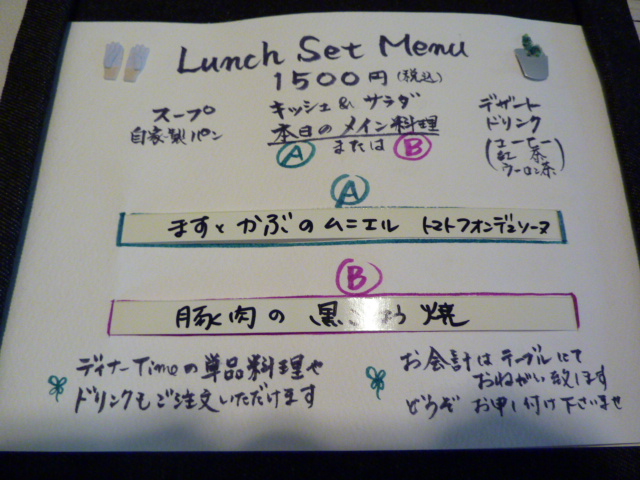 Lunch Set Menu
1500円(税込)
スープ
自家製パン
キッシュ & サラダ
本日のメイン料理
Ⓐ または Ⓑ
デザート
ドリンク
(コーヒー
紅茶
ウーロン茶)
Ⓐ
ますとかぶのムニエル トマトフォンデュソース
Ⓑ
豚肉の 黒こしょう 焼
ディナーTimeの単品料理や
ドリンクもご注文いただけます
お会計はテーブルにて
おねがい致します
どうぞ お申し付け下さいませ